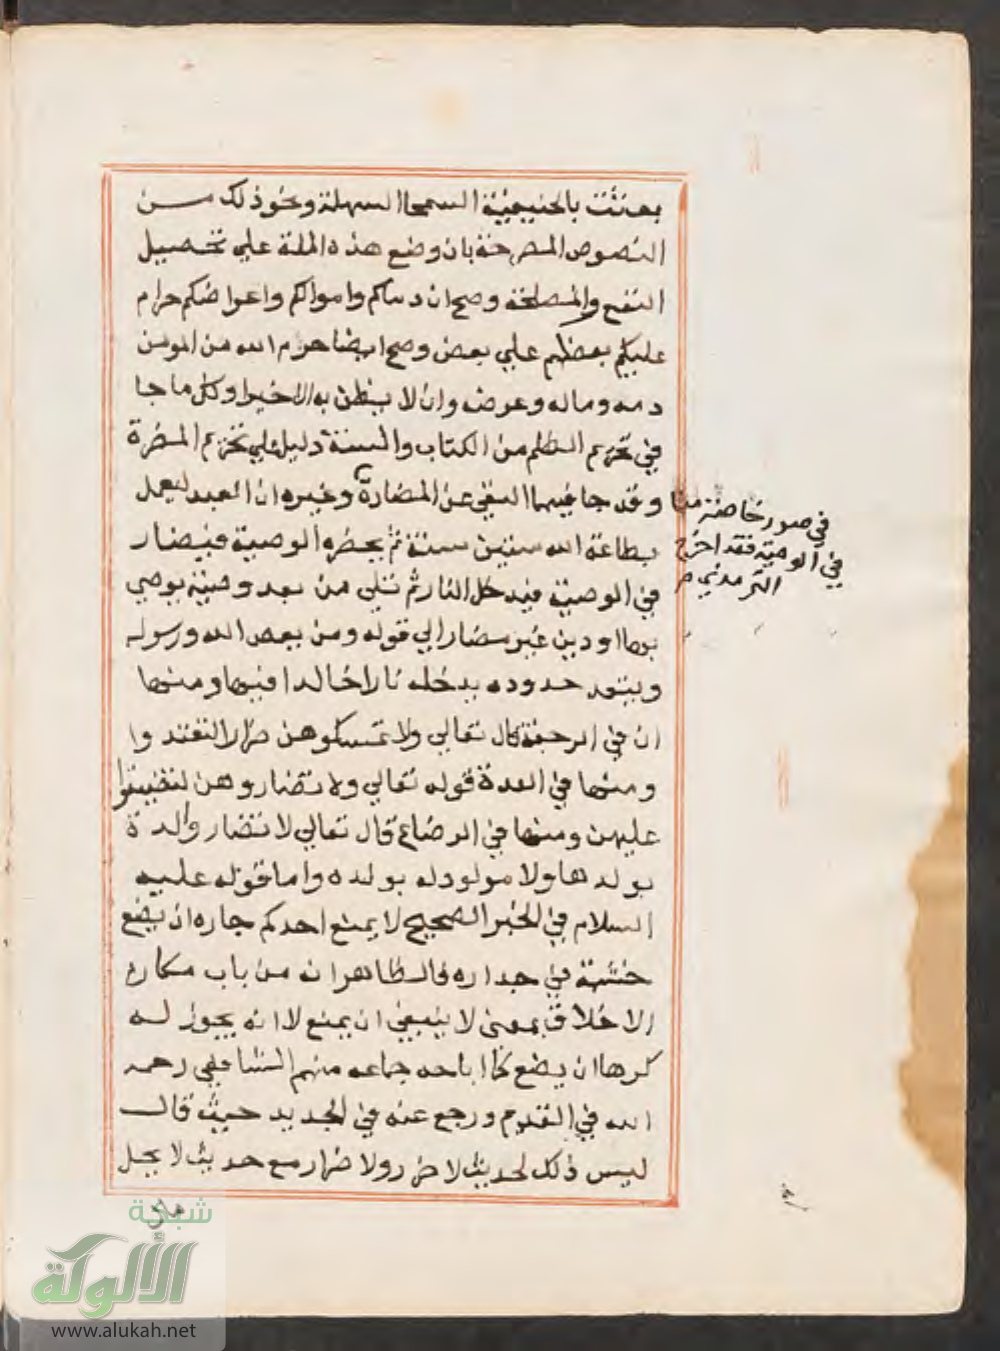 بعثت بالحنيفية السمحا السهلة ونحو ذلك من
النصوص المصرحة بان وضع هذه الملة علي تحصيل
النفع والمصلحة وصح ان دماكم واموالكم واعراضكم حرام
عليكم بعضهم علي بعض وصح ايضا حرم الله من المومن
دمه وماله وعرضه وان لا يظن به الا خيرا وكل ما جا
في تحريم الظلم من الكتاب والسنة دليل علي تحريم المضرة
وقد جا فيهما النهي عن المضارة وغيره ان العبد ليعمل
بطاعة الله ستين سنة ثم يحضره الوصية فيضار
في الوصية فيدخل النار ثم تلي من بعد وصية يوصي
بها او دين غير مضار الي قوله ومن يعص الله ورسوله
ويتعد حدوده يدخله نارا خالدا فيها ومنها
ان في الرجعة قال تعالي ولا تمسكوهن ضرارا لتعتدوا
ومنها في العدة قوله تعالي ولا تضاروهن لتضيقوا
عليهن ومنها في الرضاع قال تعالي لا تضار والدة
بولدها ولا مولود له بولده واما قوله عليه
السلام في الخبر الصحيح لا يمنع احدكم جاره ان يضع
خشبة في جداره فالظاهر انه من باب مكارم
الاخلاق بمعني لا ينبغي ان يمنع لا انه يجوز له
كرها ان يضع كما اباحه جماعه منهم الشافعي رحمه
الله في القديم ورجع عنه في الجديد حيث قال
ليس ذلك لحديث لا ضرر ولا ضرار مع حديث لا يحل
في صور خاصة منها
في الوصية فقد اخرج
الترمذي
شبكة
الألوكة
www.alukah.net